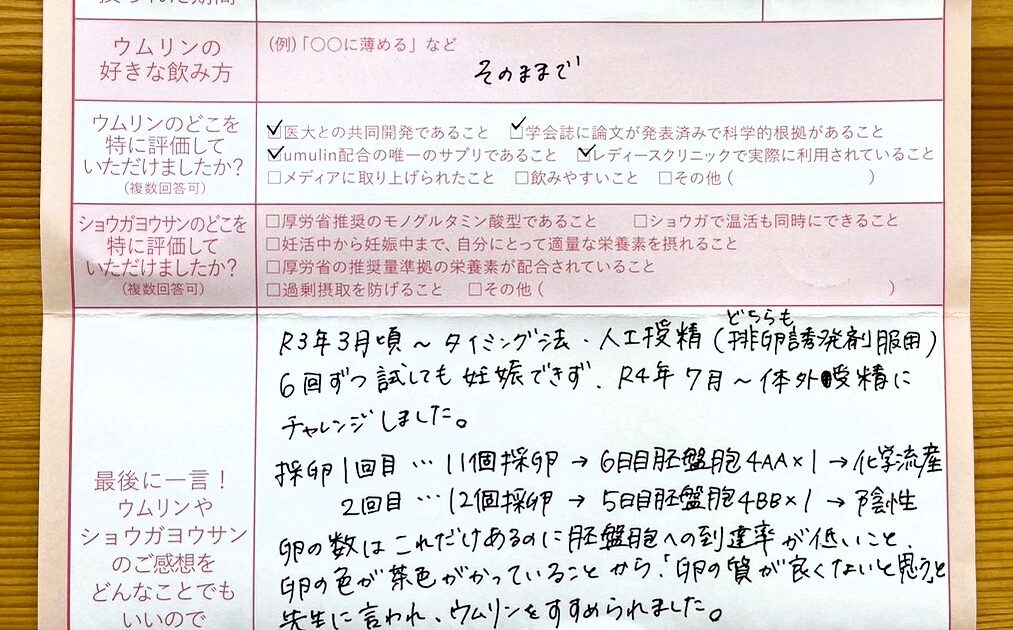 ウムリンの
好きな飲み方
(例)「〇〇に薄める」など
そのままで
ウムリンのどこを
特に評価して
いただけましたか?
(複数回答可)
☑医大との共同開発であること ☑学会誌に論文が発表済みで科学的根拠があること
☑umulin配合の唯一のサプリであること ☑レディースクリニックで実際に利用されていること
□メディアに取り上げられたこと □飲みやすいこと □その他( )
ショウガヨウサンのどこを
特に評価して
いただけましたか?
(複数回答可)
□厚労省推奨のモノグルタミン酸型であること □ショウガで温活も同時にできること
□妊活中から妊娠中まで、自分にとって適量な栄養素を摂れること
□厚労省の推奨量準拠の栄養素が配合されていること
□過剰摂取を防げること □その他( )
最後に一言!
ウムリンや
ショウガヨウサン
のご感想を
どんなことでも
いいので
どちらも
R3年3月頃~タイミング法・人工授精(排卵誘発剤服用)
6回ずつ試しても妊娠できず、R4年7月~体外受精に
チャレンジしました。
採卵1回目…11個採卵→6日目胚盤胞4AA×1→化学流産
2回目…12個採卵→5日目胚盤胞4BB×1→陰性
卵の数はこれだけあるのに胚盤胞への到達率が低いこと、
卵の色が茶色がかっていることから、「卵の質が良くないと思う」と
先生に言われ、ウムリンをすすめられました。